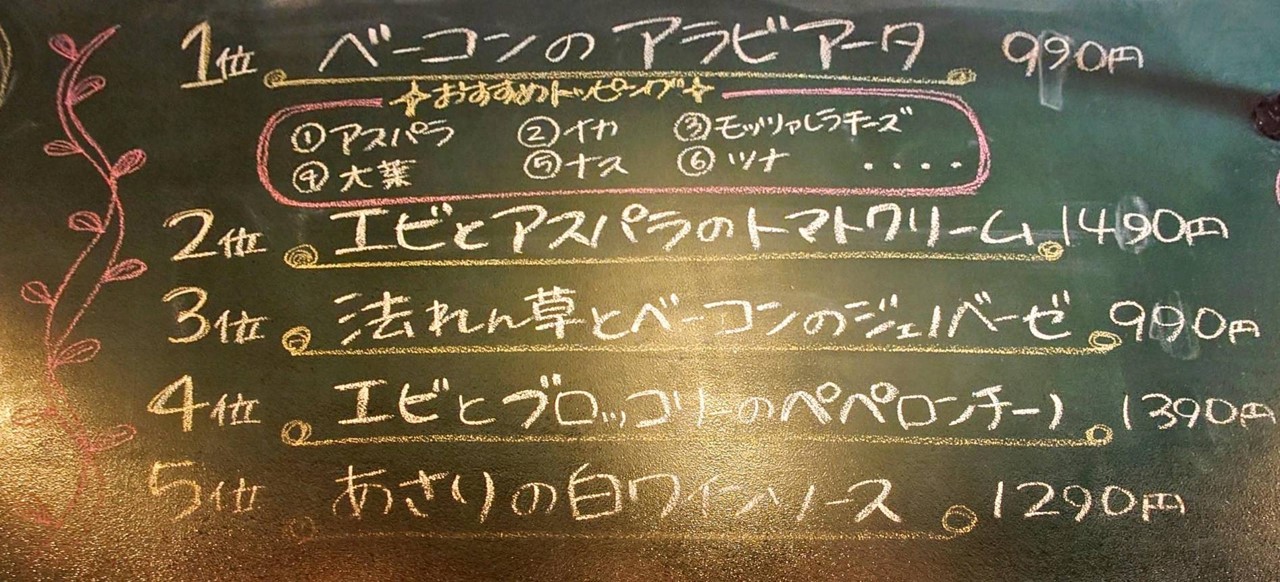 1位 ベーコンのアラビアータ 990円
おすすめトッピング
①アスパラ ②イカ ③モッツァレラチーズ
④大葉 ⑤ナス ⑥ツナ ・・・・
2位 エビとアスパラのトマトクリーム 1490円
3位 法れん草とベーコンのジェノベーゼ 990円
4位 エビとブロッコリーのペペロンチーノ 1390円
5位 あさりの白ワインソース 1290円